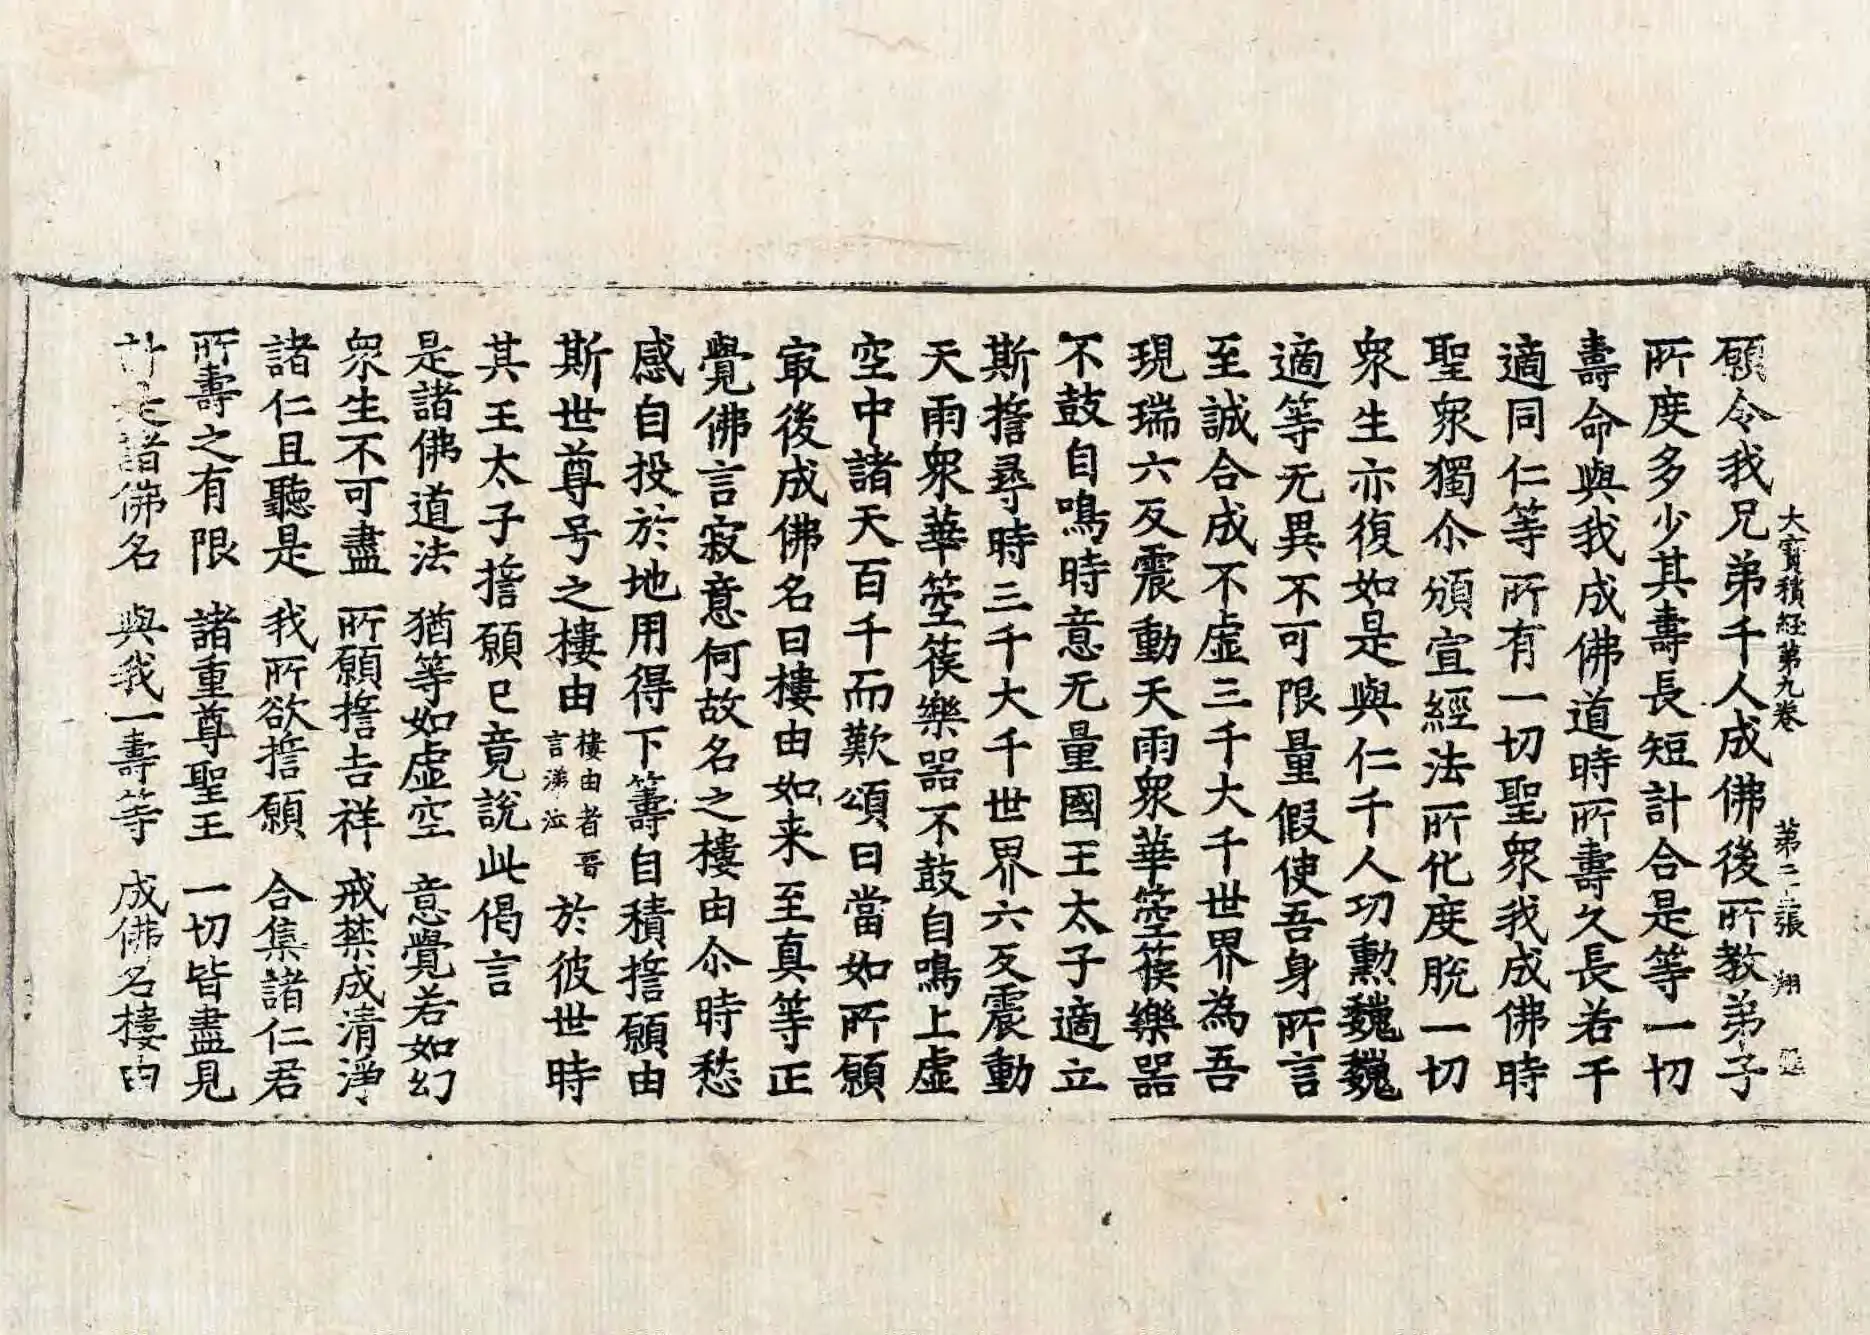 大寶積經第九卷 第二張 翔
願令我兄弟千人成佛後所教弟子
所度多少其壽長短計合是等一切
壽命與我成佛道時所壽久長若干
適同仁等所有一切聖眾我成佛時
聖眾獨尒頒宣經法所化度脫一切
眾生亦復如是與仁千人功勲巍巍
適等无異不可限量假使吾身所言
至誠合成不虛三千大千世界為吾
現瑞六反震動天雨眾華箜篌樂器
不鼓自鳴時意无量國王太子適立
斯擔尋時三千大千世界六反震動
天雨眾華箜篌樂器不鼓自鳴上虛
空中諸天百千而歎頌曰當如所願
㝡後成佛名曰樓由如来至真等正
覺佛言寂意何故名之樓由尒時愁
感自投於地用得下籌自積擔願由
斯世尊号之樓由樓由者晉言涕泣於彼世時
其王太子擔願已竟說此偈言
是諸佛道法 猶等如虛空 意覺若如幻
眾生不可盡 所願擔吉祥 戒禁成清淨
諸仁且聽是 我所欲擔願 合集諸仁君
所壽之有限 諸重尊聖王 一切皆盡見
計是諸佛名 與我一壽等 成佛名樓由